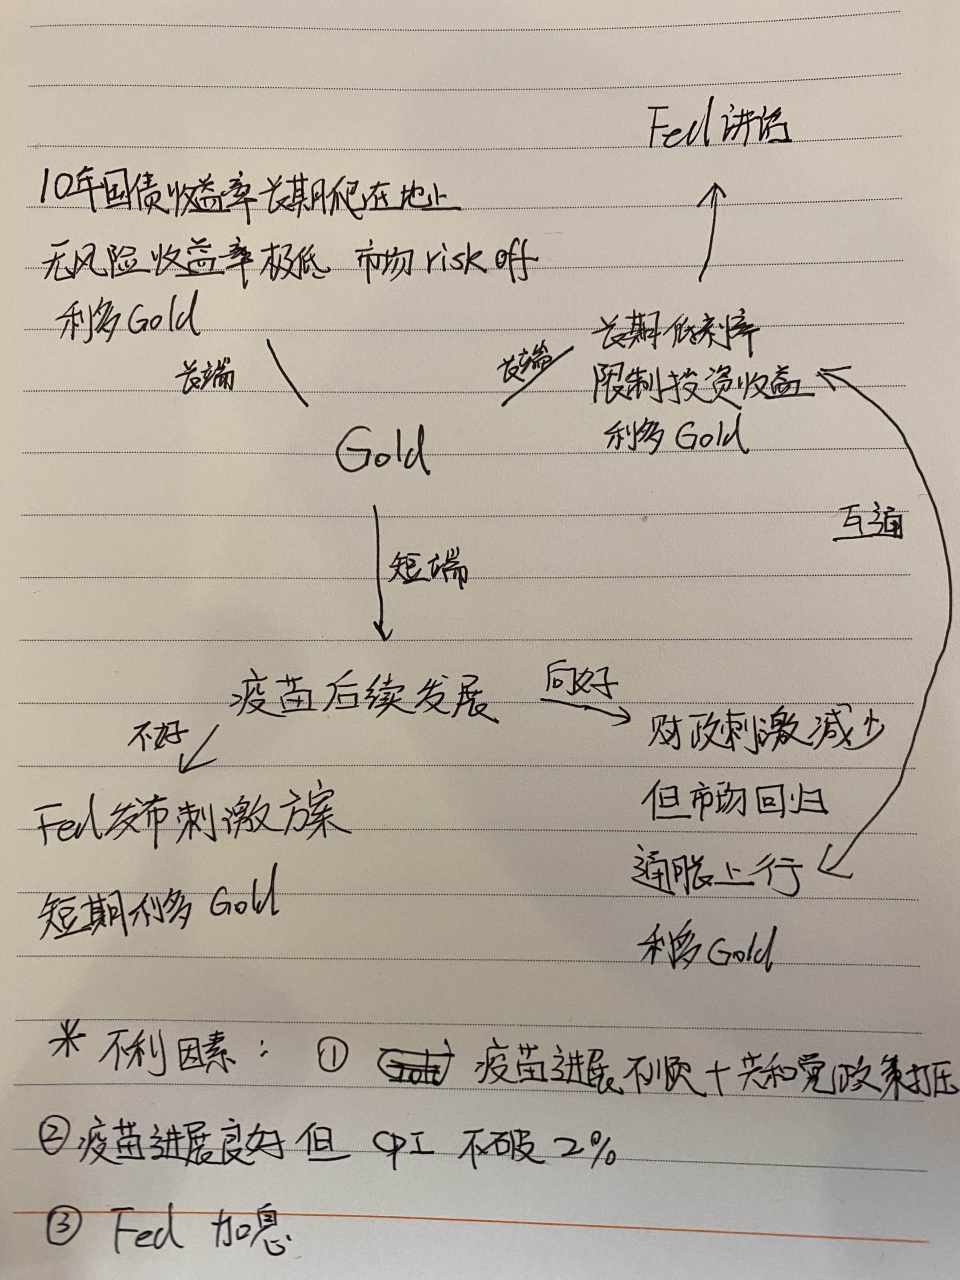 Fed讲话
10年国债收益率长期爬在地上
无风险收益率极低 市场risk off
利多Gold
长端
长端
长期低利率
限制投资收益
利多Gold
Gold
互通
短端
疫苗后续发展
向好
不好
财政刺激减少
但市场回归
通胀上行
利多Gold
Fed发布刺激方案
短期利多Gold
* 不利因素: ① 疫苗进展不顺+共和党政策打压
②疫苗进展良好但 CPI 不破2%
③ Fed 加息